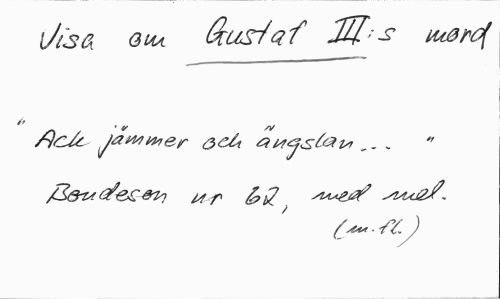 Visa om Gustaf III:s mord
"Ack jämmer och ängslan... "
Bondeson nr 62, med mel.
(m.fl.)